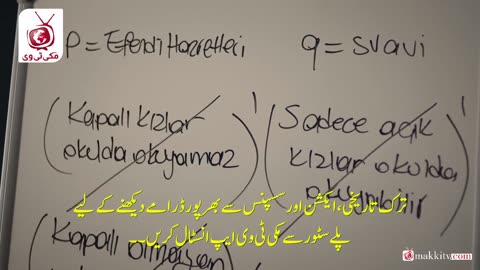 مکی ٹی وی
P = Efendi Hazretleri
q = sıravi
Kapalı kızlar
okulda okuyamaz
Sadece açık
kızlar okulda
okuyabilir
ترک تاریخی، ایکشن اور سسپنس سے بھرپور ڈرامے دیکھنے کے لیے
پلے سٹور سے مکی ٹی وی ایپ انسٹال کریں۔۔
Kapalı olmayan
makkitv.com